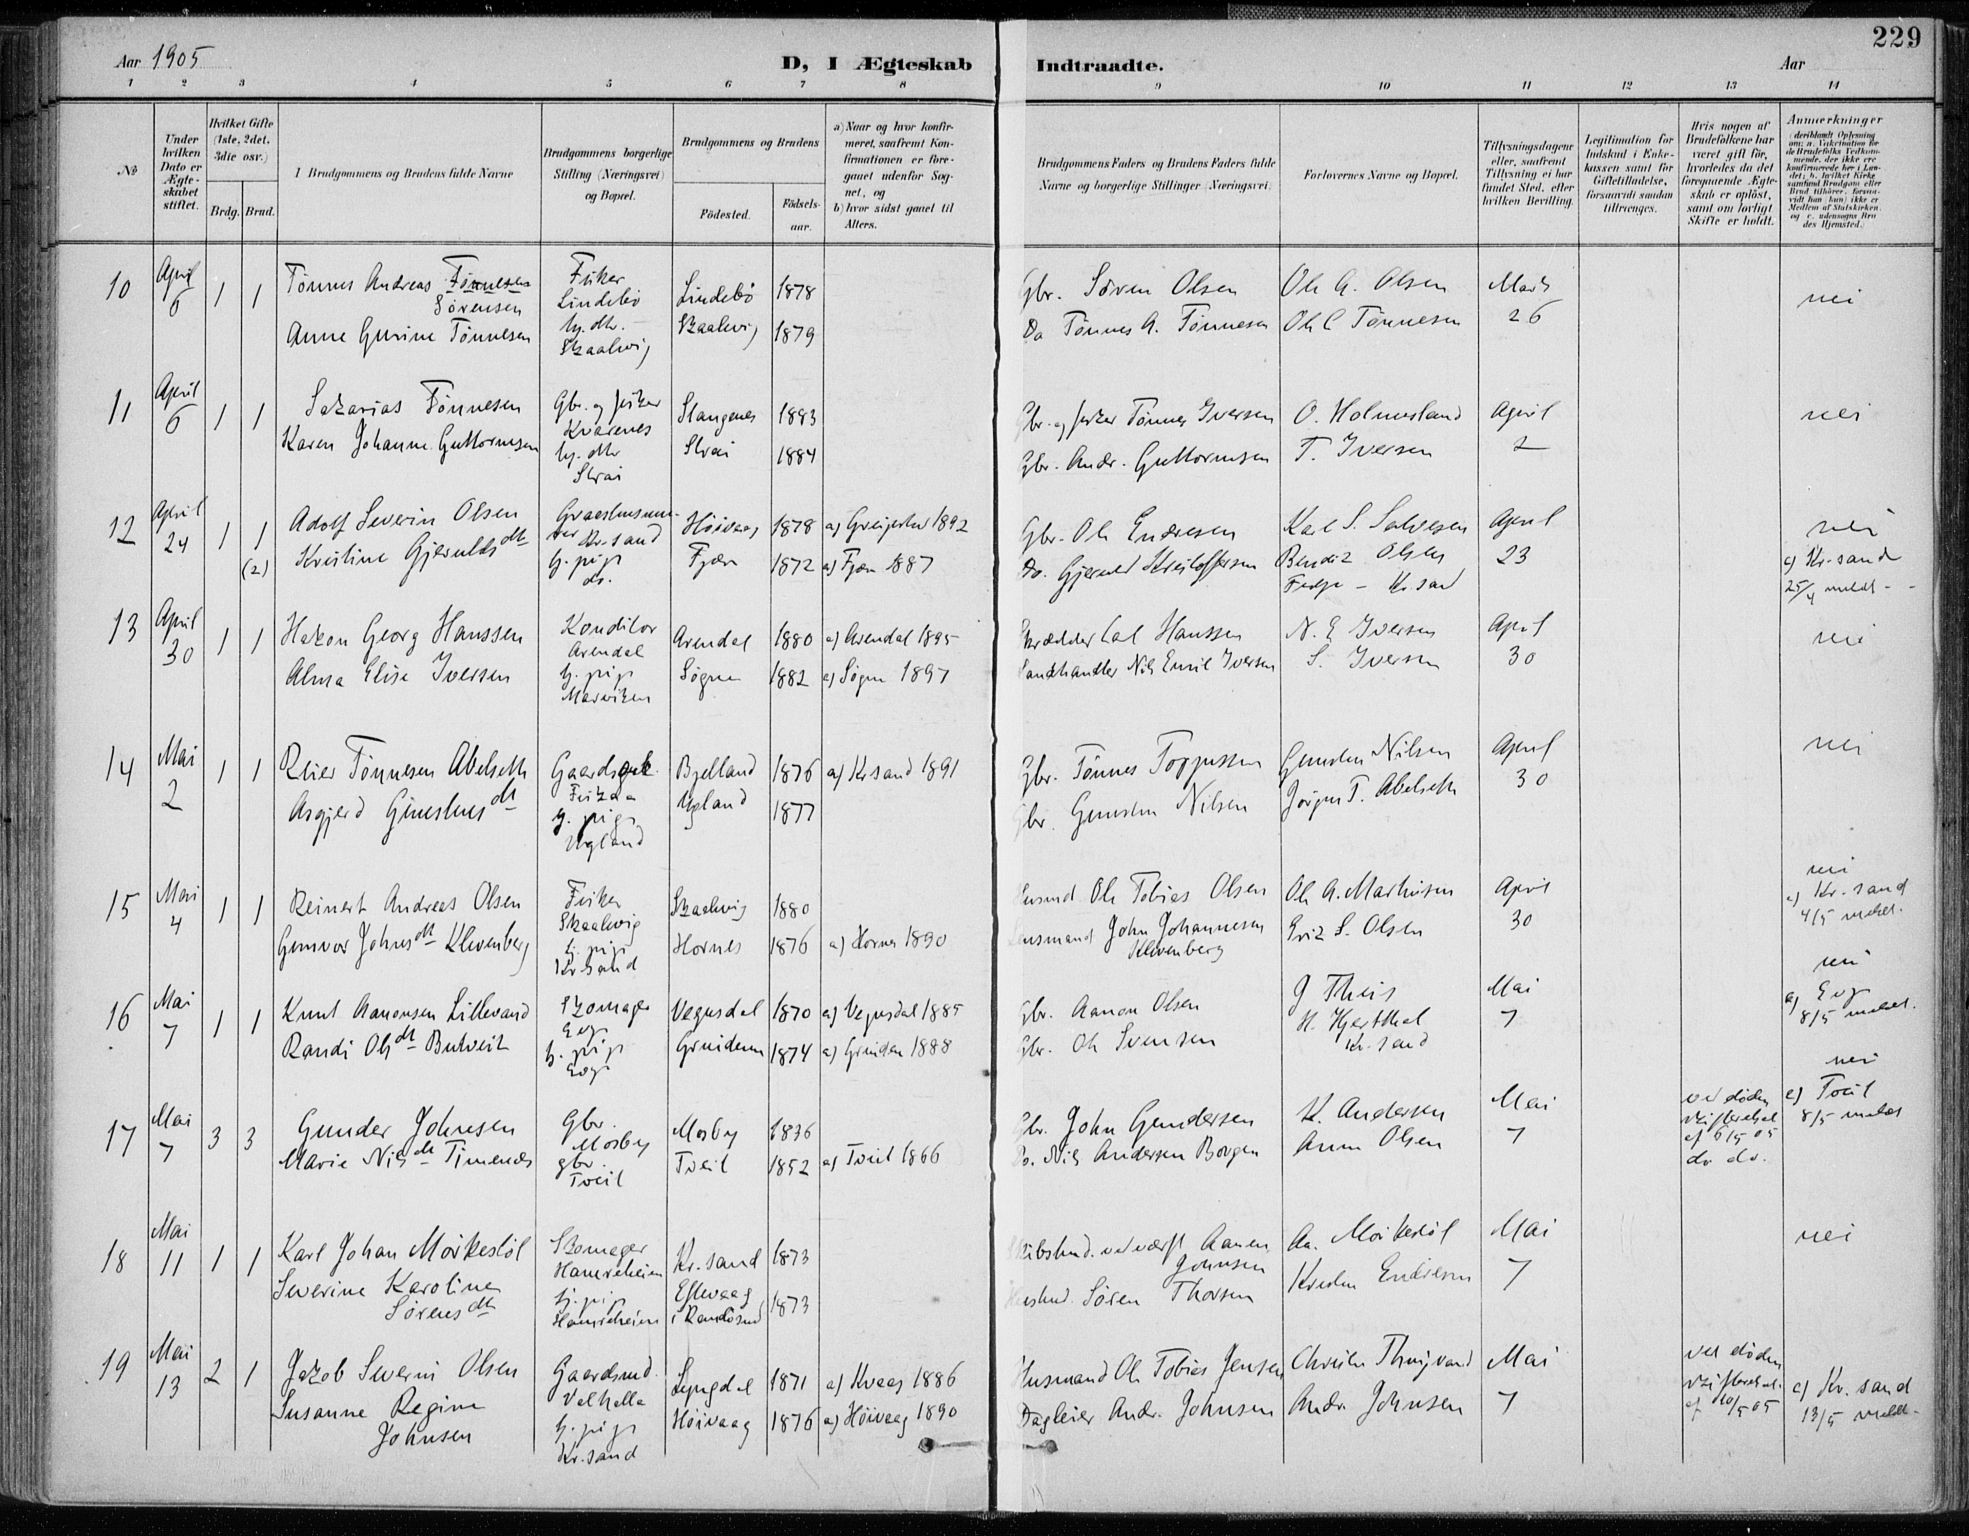 229
Aar 1905
D, I Ægteskab Indtraadte.
Aar
1 2 3 4 5 6 7 8 9 10 11 12 13 14
No
Under hvilken Dato er Ægteskabet stiftet.
Hvilket Gifte (1ste, 2det, 3die osv.)
Brdg. Brud.
Brudgommens og Brudens fulde Navne
Brudgommens borgerlige Stilling (Næringsvei) og Bopæl.
Brudgommens og Brudens
Födested.
Födselsaar.
a) Naar og hvor konfirmeret, saafremt Konfirmationen er foregaaet udenfor Sognet, og
b) hvor sidst gaaet til Alters.
Brudgommens Faders og Brudens Faders fulde Navne og borgerlige Stillinger (Næringsvei)
Forlovernes Navne og Bopæl.
Tillysningsdagene eller, saafremt Tillysning ei har fundet Sted, efter hvilken Bevilling.
Legitimation for Indskud i Enkekassen samt for Giftetilladelse, forsaavidt saadan tiltrænges.
Hvis nogen af Brudefolkene har været gift för, hvorledes da det foregaaende Ægteskab er oplöst, samt om lovligt Skifte er holdt.
Anmerkninger
10 April 6 1 1
Tönnes Andreas Tönnesen
Sörensen
Fisker
Lindebö
Lindebö 1878
Gbr. Sören Olsen
Ole A. Olsen
Marts 26
nei
Anne Gurine Tönnesen
Skaalvig
Skaalvig 1879
Do Tönnes A. Tönnesen
Ole C Tönnesen
11 April 6 1 1
Sakarias Tönnesen
Gbr. og fisker
Kvarenes
Stangenes 1883
Gbr. og fisker Tönnes Iversen
O. Holmesland
April 2
nei
Karen Johanne Guttormsen
Strai
Strai 1884
Gbr. Andr. Guttormsen
T. Iversen
12 April 24 1 1 (2)
Adolf Severin Olsen
Kr.sand
Höivaag 1878
Gbr. Ole Endresen
Karl S. Salvesen
April 23
nei
Kristine Gjerulds dtr
tj. pige
do.
Fjære 1872 a) Fjære 1887
Do. Gjeruld Kristoffersen
Bendix Olsen
Kr.sand
c) Kr.sand
25/4 meldt
13 April 30 1 1
Hakon Georg Hanssen
Konditor
Arendal
Arendal 1880 a) Arendal 1895
Skrædder Carl Hanssen
N. E Iversen
April 30
nei
Alma Elise Iversen
tj. pige
Marviken
Søgne 1882 a) Søgne 1897
Landhandler Nils Emil Iversen
S. Iversen
14 Mai 2 1 1
Reier Tönnesen Abelseth
Fiskaa
Bjelland 1876 a) Kr.sand 1891
Gbr. Tönnes
Gunsten Nilsen
April 30
nei
Asgjerd Gunstens dtr
tj. pige
Ugland
Ugland 1877
Gbr. Gunsten Nilsen
Jörgen T. Abelseth
15 Mai 4 1 1
Reinert Andreas Olsen
Fisker
Skaalevig
Skaalevig 1880
Husmd Ole Tobias Olsen
Ole A. Mathisen
April 30
nei
c) Kr.sand
4/5 meldt.
Gunvor Johns dtr Klevenberg
tj. pige
Kr.sand
Hornes 1876 a) Hornes 1890
Lensmand John Johannesen
Klevenberg
S. Olsen
16 Mai 7 1 1
Knut Aanonsen Lillevand
Skomager
Evje
Vegusdal 1870 a) Vegusdal 1885
Gbr. Aanon Olsen
J Theis
Mai 7
nei
c) Evje
8/5 meldt.
Randi Ols dtr Butveit
tj. pige
Evje
1874 1888
Gbr. Ole Svensen
H. Hjertthal
Kr.sand
17 Mai 7 3 3
Gunder Johnsen
Gbr.
Mosby
Mosby 1836
Gbr. John Gundersen
K. Andersen
Mai 7
ved döden
skifteattest
af 6/5 05
do do.
nei
c) Tveit
8/5 meldt
Marie Nils dtr Timenes
gbr.
Tveit
Tveit 1852 a) Tveit 1866
Do. Nils Andersen Borgen
Anun Olsen
18 Mai 11 1 1
Karl Johan Mörkeslöl
Skomager
Hamreheien
Kr.sand 1873
Aanen
Johnsen
Aa. Mörkeslöl
Mai 7
nei
Severine Karoline
Sörens dtr
tj. pige
Hamreheien
Eftevaag
i Randösund 1873
Husmd. Sören Thorsen
Kristen Endresen
19 Mai 13 2 1
Jakob Severin Olsen
Gaardsmd.
Valhalla
Lyngdal 1871 a) Kvaas 1886
Husmand Ole Tobias Jensen
Mai 7
ved döden
skifteattest.
af 10/5 05
c) Kr. sand
13/5 meldt.
Susanne Regine
Johnsen
tj. pige
Kr.sand
Höivaag 1876 a) Höivaag 1890
Dagleier Andr. Johnsen
Andr. Johnsen